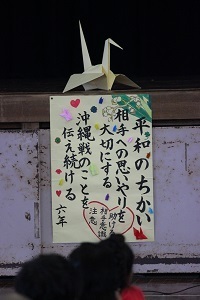 平和のちかい
相手への思いやりを
大切にする
助け
相手意識
注意
沖縄戦のことを
伝え続ける
六年